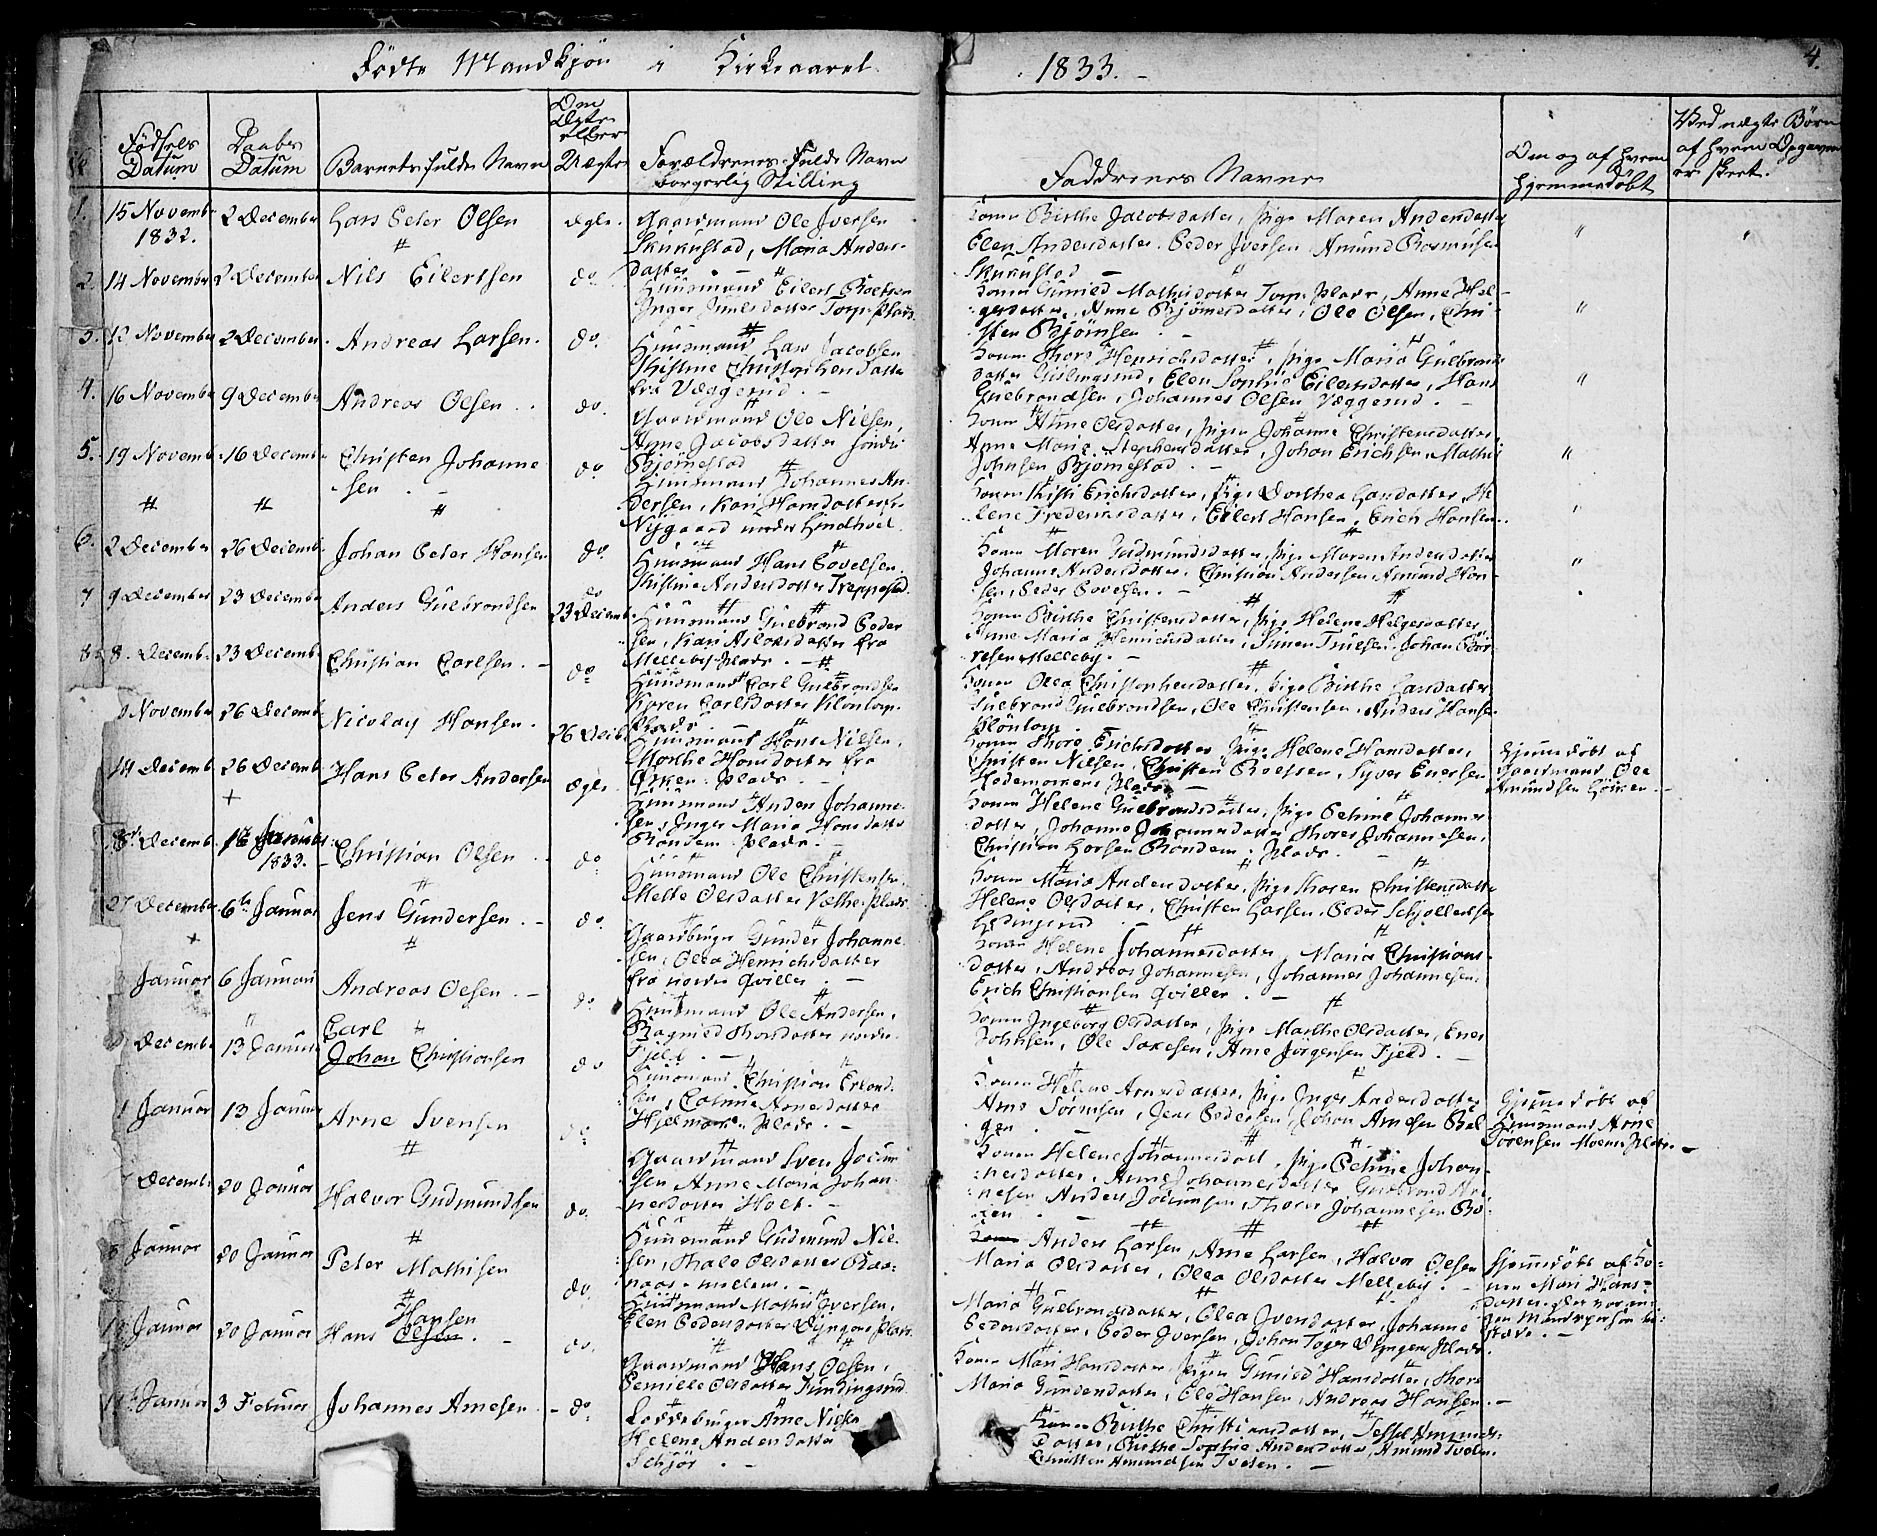 Födte Mandkjön i Kirkeaaret 1833. 4.
Födsels Datum
Daabs Datum
Barnets fulde Navn
Om Ægte eller Uægte
Forældrenes fulde Navn borgerlig Stilling
Faddrenes Navne
Om og af hvem hjemmedöbt
Ved uægte Börn af hvem Opgaven er skeet.
1. 15 Novemb 1832. 2 December Lars Peder Olsen ægte. Gaardmand Ole Iversen
Skukustad, Maria Anders-
datter
Konen Birthe Jacobsdatter, Pige Maren Andersdatter
Elen Andersdatter. Peder Iversen Amund Rasmusen
Skukustad
2. 14 November 2 December Nils Eilertsen do. Huusmand Eilert Roelsen
Inger Juulsdatter Torp. Plads.
Konen Gunild Mathisdatter Torp. Plads, Anne Hel-
gesdatter, Anne Björnsdatter, Ole Olsen, Chri-
sten Björnsen
3. 12 November 2 December. Andreas Larsen. do. Huusmand Lars Jacobsen
Kistine Christophersdatter
fra Væggerud.
Konen Thore Henrichsdatter, Pige Maria Gulbrands
datter Gislingrud, Elen Sophie Eilersdatter, Hans
Gulbrandsen, Johannes Olsen Væggerud.
4. 16 November 9 December Andreas Olsen. do. Gaardmand Ole Nilsen,
Anne Jacobsdatter söndre
Björnestad
Konen Anne Olsdatter, Pigen Johanne Christensdatter
Anne Maria Stephensdatter, Johan Erichsen, Mathis
Johnsen Björnestad.
5. 19 Novemb. 16 Decemb Christen Johanne
sen. do Huusmand Johannes An-
dersen, Kari Hansdatter
Nygaard under Lindhoel.
Konen Kisti Erichsdatter, Pige Dorthea Larsdatter, He
lene Fredericsdatter, Eilert Hansen, Erich Hansen.
6. 2 December 26 Decemb. Johan Peter Hansen do. Huusmand Hans Povelsen
Kistine Andersdatter Treppestad.
Konen Maren Gudmundsdatter, Pige Maren Andersdatter
Johanne Andersdatter. Christian Andersen Amund Han-
sen, Peder Povelsen.
7 9 December 23 December Anders Gulbrandsen do 23 Decemb. Huusmand Gulbrand Peder
sen, Kari Aslaksdatter fra
Melleby Plads.
Konen Birthe Christensdatter, Pige Helene Helgesdatter,
Anne Maria Henrichsdatter, Simen Truelsen. Johan Bör-
resen Melleby.
8. 8. Decemb. 23 Decemb Christian Carlsen. do Huusmand Carl Gulbrandsen
Karen Carlsdatter Klöntorp.
Plads
Konen Olea Christophersdatter, Pige Birthe Larsdatter,
Gulbrand Gulbrandsen, Ole Christensen. Anders Hansen
Klöntorp
November 26 Decemb Nicolay Hansen. 26 Decb. Huusmand Hans Nilsen,
Marthe Hansdatter fra
Örken. Plads.
Konen Thore Erichsdatter Pige Helene Hansdatter,
Christen Nilsen, Christen Roelsen, Syver Enersen
Hedemarkens Plads
14 Decemb 26 Decemb Hans Peter Andersen ægte. Huusmand Anders Johanne-
sen, Inger Maria Hansdatter
Randem. Plads.
Konen Helene Gulbrandsdatter, Pige Petrine Johannes
datter, Johanne Johannesdatter Thorer Johannesen,
Christian Larsen Randem. Plads.
Hjemmedöbt af
Gaardmand Ole
Amundsen Görken.
8de Decemb. 1te Januar 1833. Christian Olsen do Huusmand Ole Christensen
Mette Olsdatter Væthe. Plads
Konen Maria Andersdatter, Pige Thoren Christensdatter
Helene Olsdatter, Christen Larsen. Peder Schjollersen
27 December. 6te Januar Jens Gundersen. do. Gaardbruger Gunder Johanne
sen, Olea Henrichsdatter
fra nordre Qviller.
Konen Helene Johannesdatter, Maria Christians-
datter, Andreas Johannesen, Johannes Johannesen.
Erich Christiansen Qviller.
Januar 6 Januar Andreas Olsen. do Huusmand Ole Andersen,
Ragnild Thoresdatter nordre
Fjeld.
Konen Ingeborg Olsdatter, Pige Marthe Olsdatter, Ener
Johnsen, Ole Saxesen, Arne Jörgensen Fjeld.
Decemb 13 Januar Carl
Johan Christiansen do Huusmand Christian Erland.
sen, Arnesdatter
Hjelmark Plads.
Konen Helene Arnesdatter, Pige Inger Andersdatter
Arne Sörensen, Jens Pedersen, Johan Arnesen Bal
gen
1 Januar 13 Januar Arne Svensen do. Gaardmand Sven Joeum
sen Anne Maria Johan-
nesdatter Holt.
Konen Helene Johannesdatt, Pige Petrine Johan-
nesdatter, Anne Johannesdatter Gulbrand
nesen Anders Joeumsen, Thorer Johannesen
Hjemmedöbt af
Huusmand Arne
Sörensen Moenes Plads.
Decemb 20 Januar Halvor Gudmundsen do. Huusmand Gudmund Niel
sen, Thale Olsdatter Raa-
naas. mellem.
Konen Anders Larsen, Arne Larsen, Halvor Olsen
Maria Olsdatter, Olea Olsdatter Melleby.
Januar 20 Januar Peter Mathisen do. Huusmand Mathis Iversen,
Elen Pedersdatter Dyngens Plads.
Maria Gulbrandsdatter, Olea Iversdatter, Johanne
Pedersdatter, Peder Iversen, Johan Dyngens Plads.
Hjemmedöbt af Ko-
nen Mari Hans-
datter. var in-
gen Mandsperson til-
stede.
Januar 20 Januar Hans Hansen Olsen. do. Gaardmand Hans Olsen,
Pernille Olsdatter Kundingsrud
Konen Mari Hansdatter, Pigen Gunild Hansdatter, Thore
Maria Gundersdatter, Ole Hansen, Andreas Hansen.
Januar 3 Februar Johannes Arnesen. do. Lodsbruger Arne Nielsen
Helene Andersdatter
Schjör
Konen Birthe Christiansdatter, Amunds
datter, Birthe Sophie Andersdatter, Amund Tveten.
Christen Amundsen Tveten.